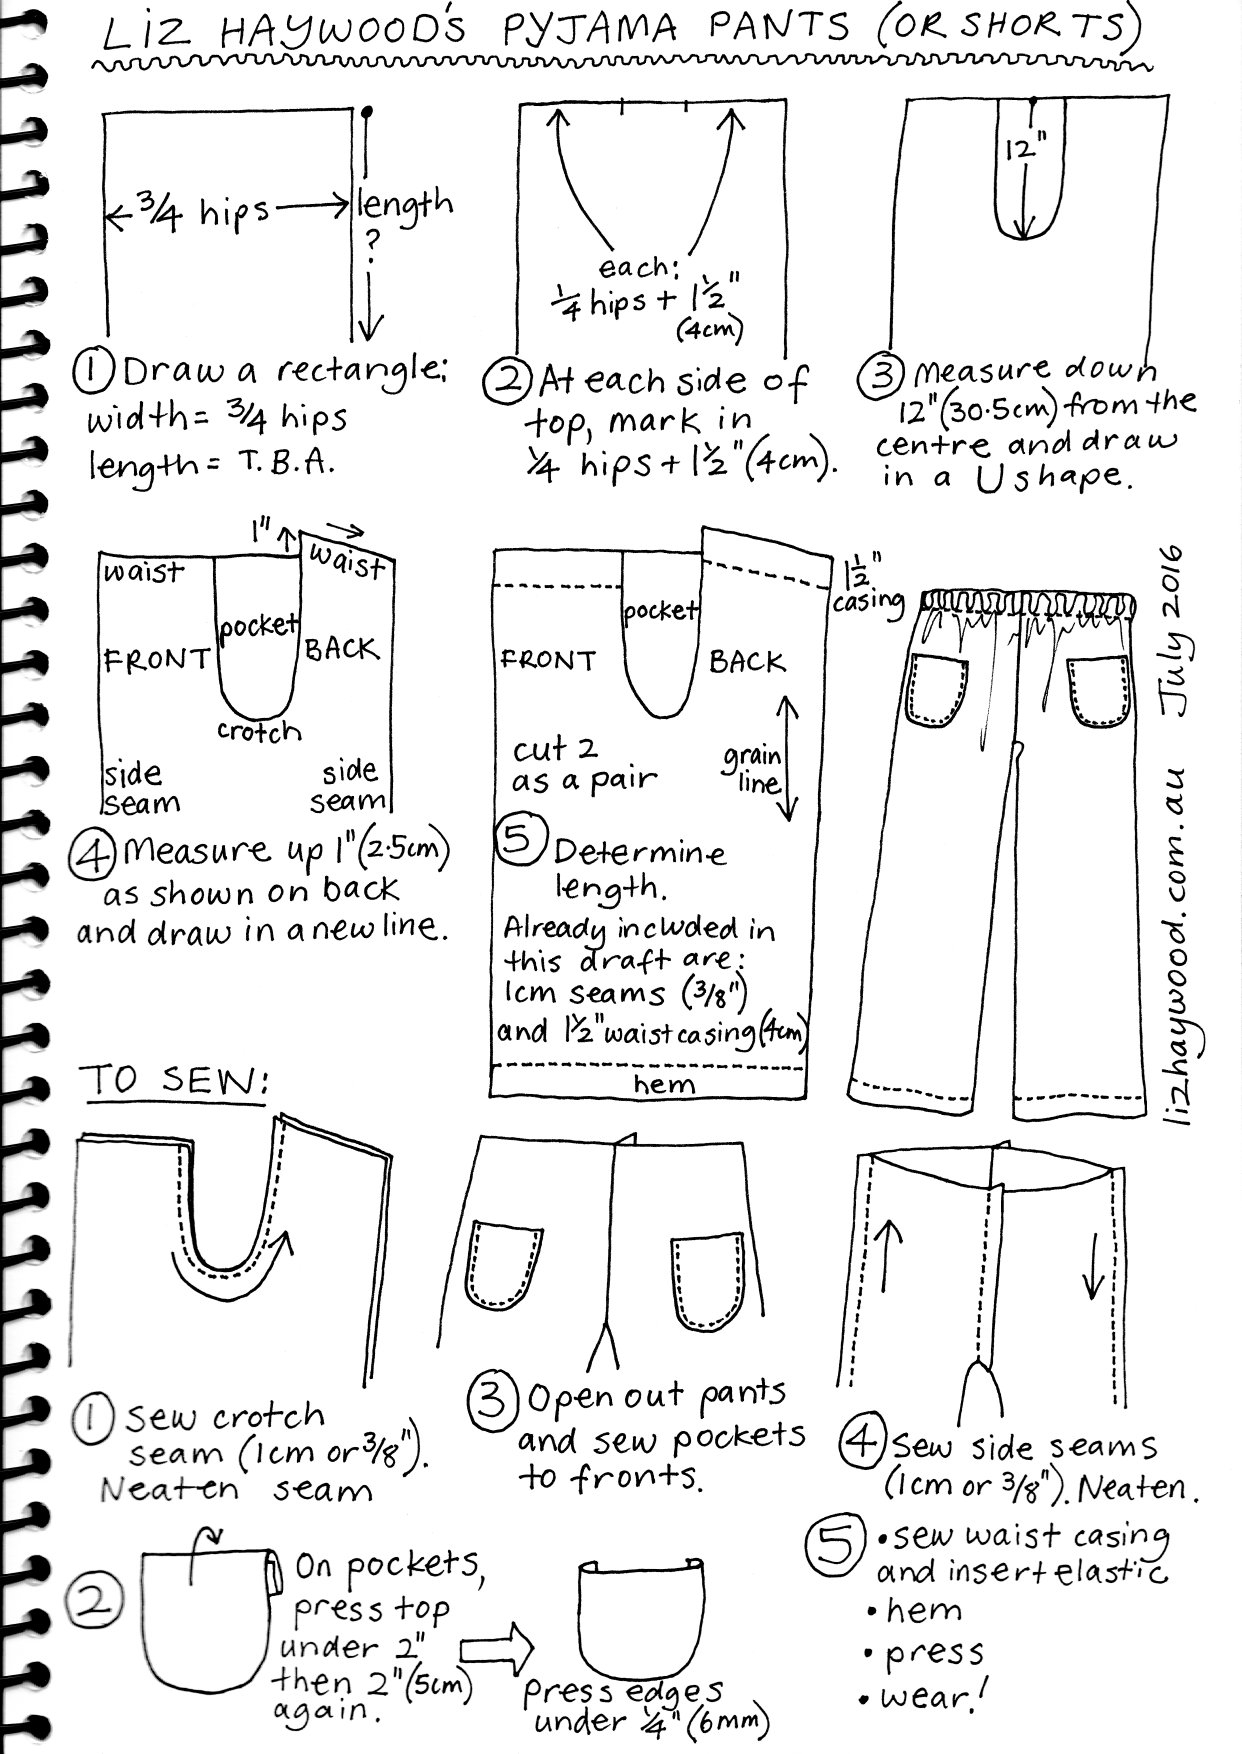 LIZ HAYWOOD'S PYJAMA PANTS (OR SHORTS)
← 3/4 hips →
length
?
① Draw a rectangle:
width = 3/4 hips
length = T.B.A.
each:
1/4 hips + 1 1/2"
(4cm)
② At each side of
top, mark in
1/4 hips + 1 1/2" (4cm).
12"
③ Measure down
12" (30.5cm) from the
centre and draw
in a U shape.
1"
waist
waist
pocket
FRONT
BACK
crotch
side
seam
side
seam
④ Measure up 1" (2.5cm)
as shown on back
and draw in a new line.
1 1/2"
casing
pocket
FRONT
BACK
cut 2
as a pair
grain
line
⑤ Determine
length.
Already included in
this draft are:
1cm seams (3/8")
and 1 1/2" waist casing (4cm)
hem
lizhaywood.com.au July 2016
TO SEW:
① Sew crotch
seam (1cm or 3/8").
Neaten seam
② On pockets,
press top
under 2"
then 2" (5cm)
again.
press edges
under 1/4" (6mm)
③ Open out pants
and sew pockets
to fronts.
④ Sew side seams
(1cm or 3/8"). Neaten.
⑤ • sew waist casing
and insert elastic
• hem
• press
• wear!